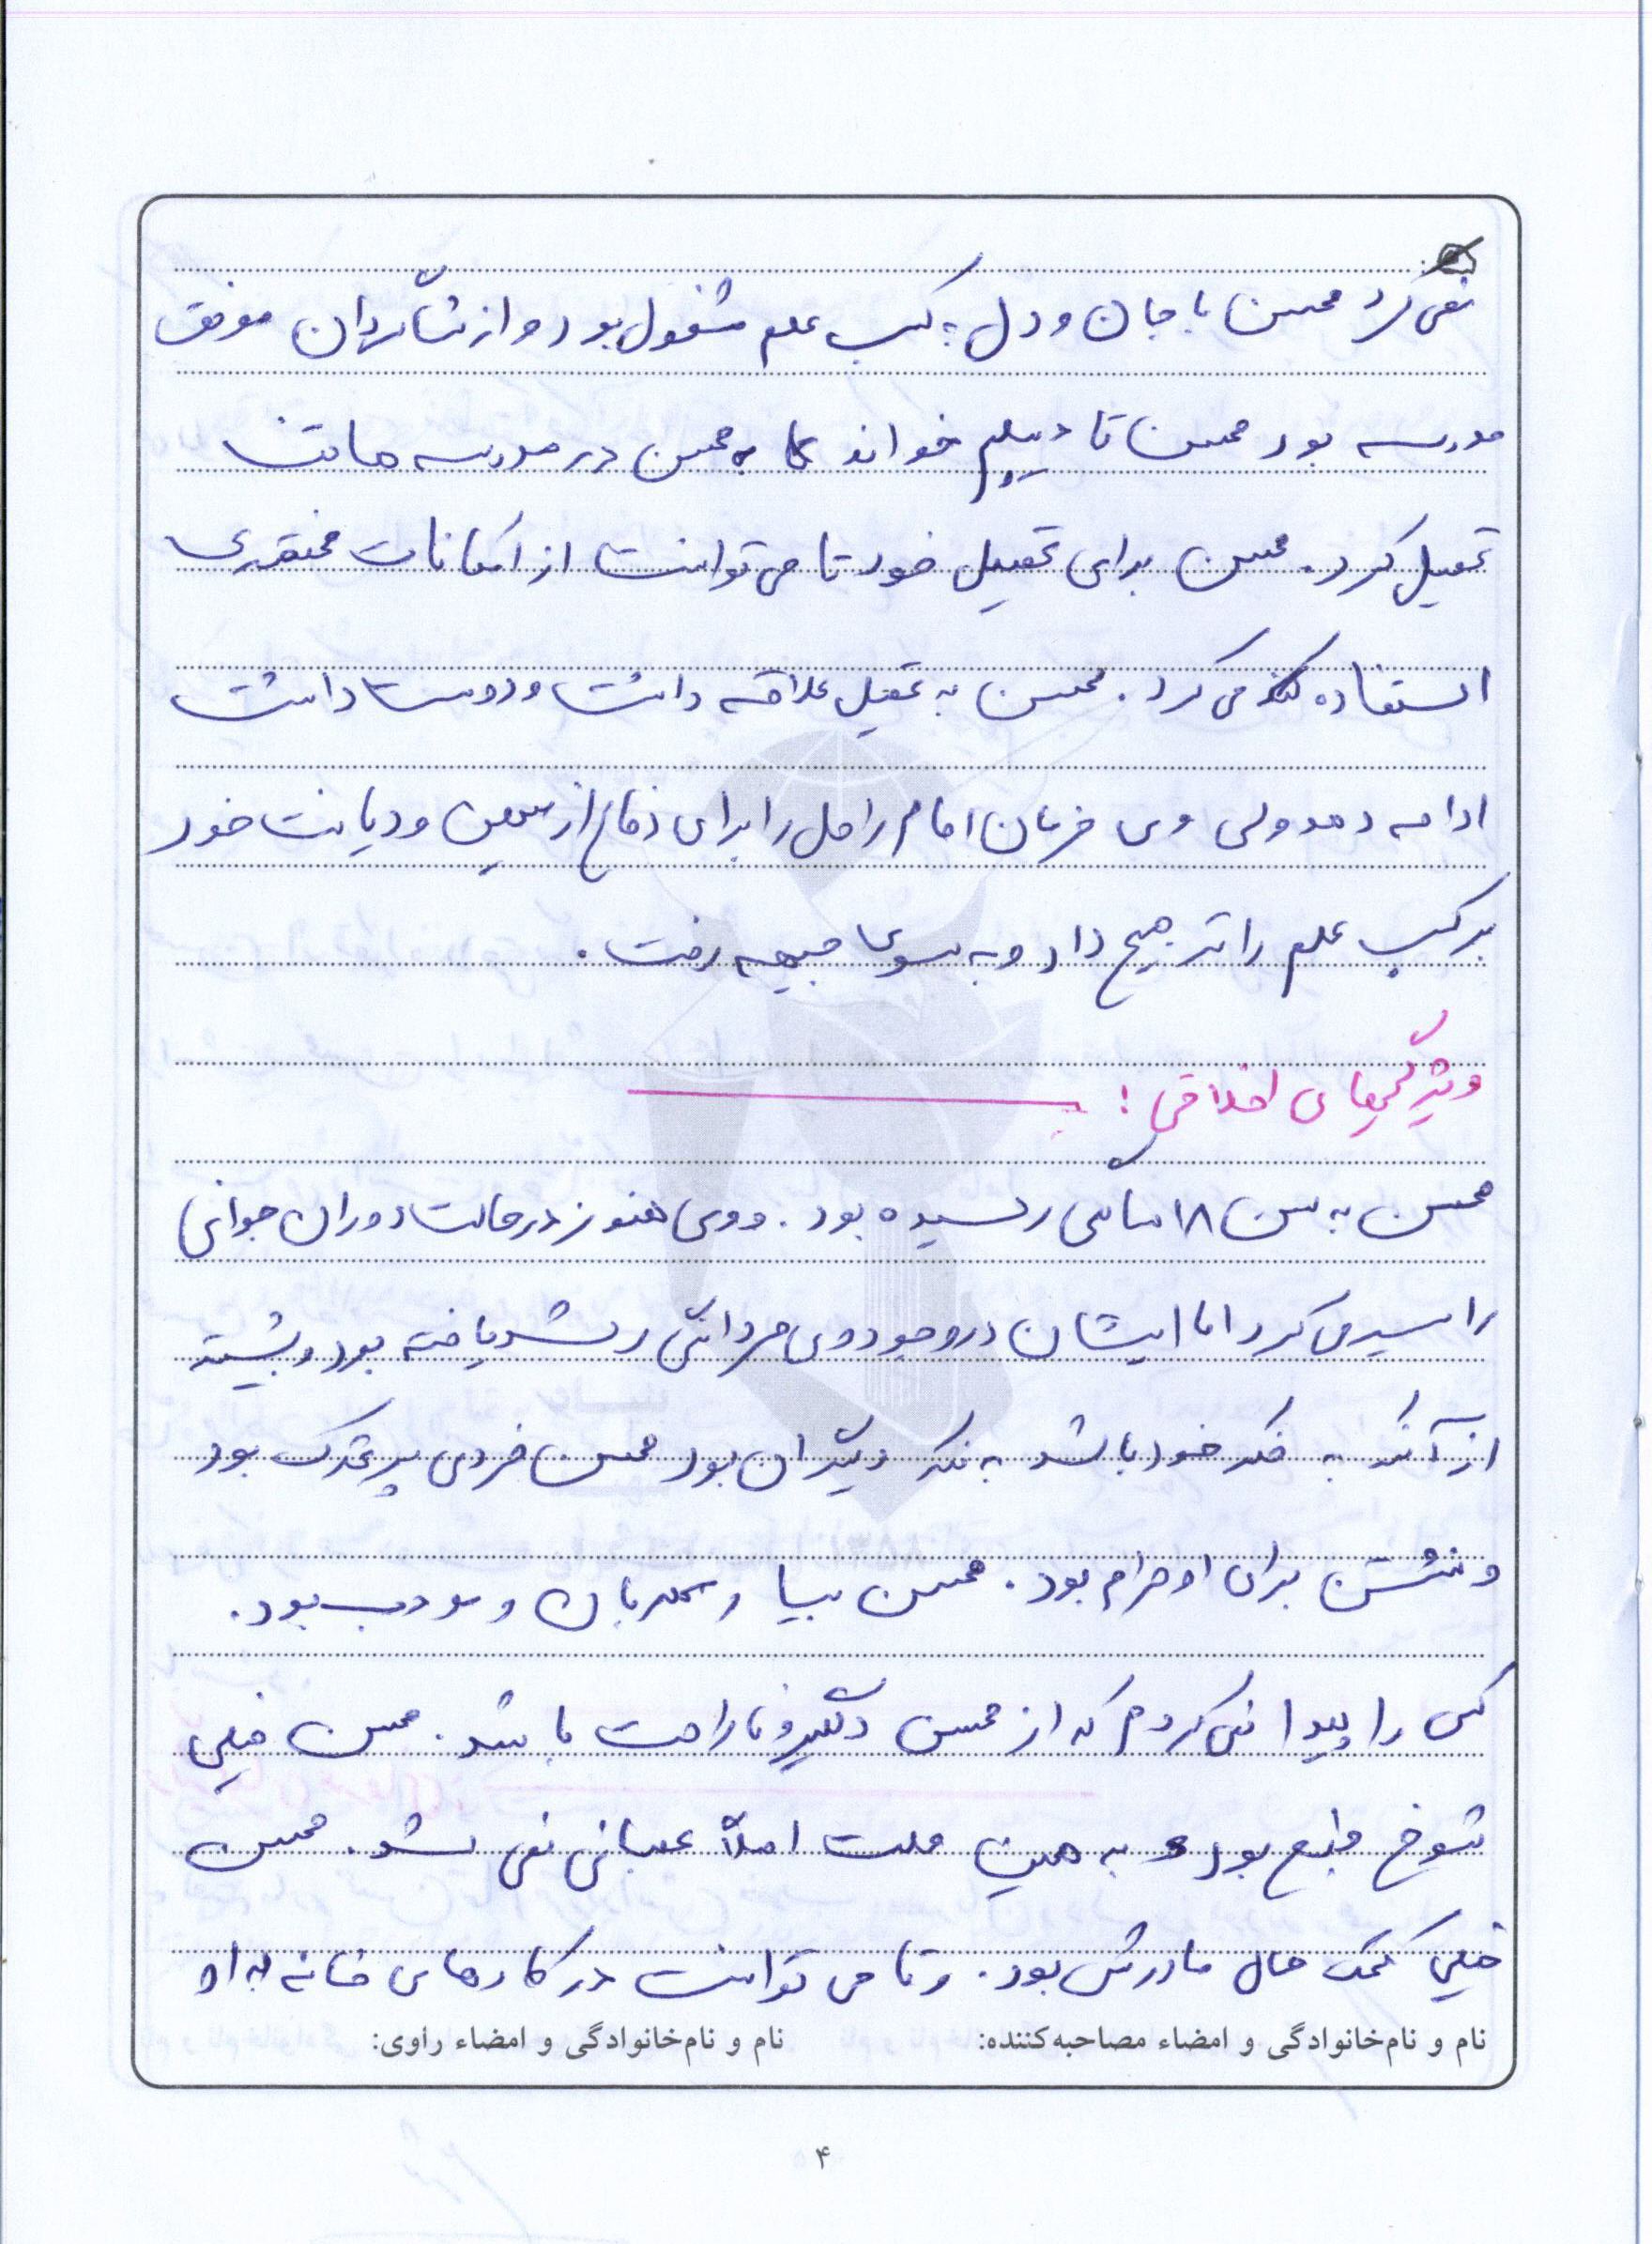 نمی کرد محسن با جان و دل به کسب علم مشغول بود و از شاگردان موفق
مدرسه بود محسن تا دیپلم خواند محسن در مدرسه هاتف
تحصیل کرد. محسن برای تحصیل خود تا می توانست از امکانات مختصری
استفاده می کرد. محسن به تحصیل علاقه داشت و دوست داشت
ادامه دهد ولی وی فرمان امام راحل را برای دفاع از میهن و دیانت خود
بر کسب علم را ترجیح داد و به سوی جبهه رفت.
ویژگیهای اخلاقی:
محسن به سن ۱۸ سالگی رسیده بود. و وی هنوز در حالت دوران جوانی
را سپری می کرد اما ایشان در وجود وی مردانگی رشد یافته بود و بیشتر
از آنکه به فکر خود باشد به فکر دیگران بود محسن فردی پر تحرک بود
و نشستن برای او حرام بود. محسن بسیار مهربان و مودب بود.
کسی را پیدا نمی کردم که از محسن دلگیر و ناراحت باشد. محسن خیلی
شوخ طبع بود و به همین علت اصلاً عصبانی نمی شد. محسن
خیلی کمک حال مادرش بود. و تا می توانست در کارهای خانه به او
نام و نام‌خانوادگی و امضاء مصاحبه‌کننده: نام و نام‌خانوادگی و امضاء راوی:
۴